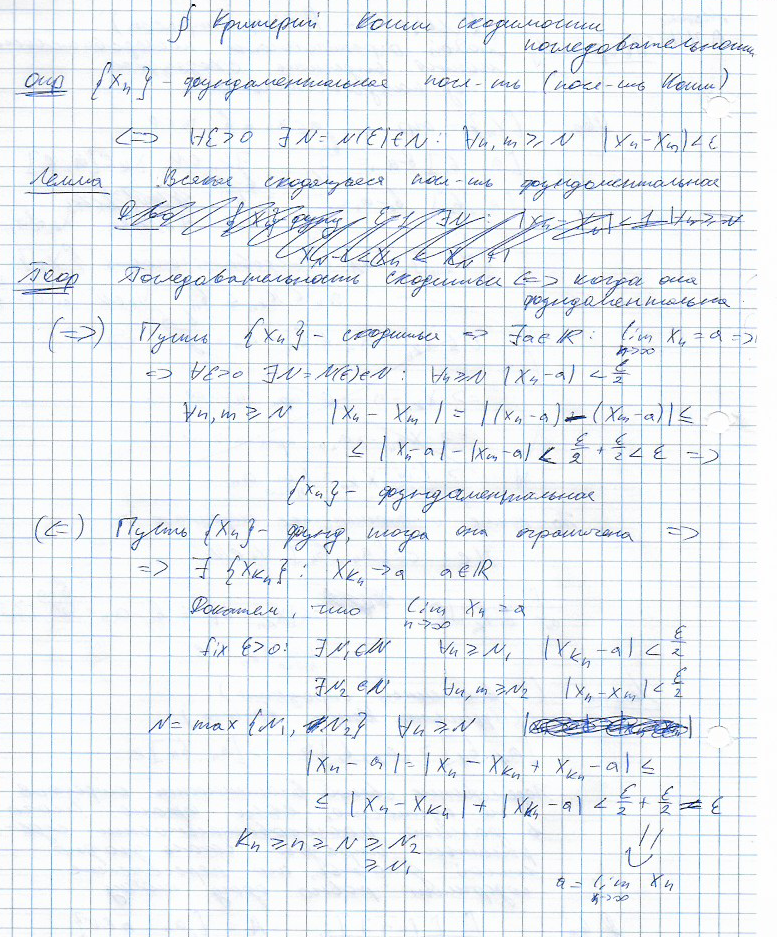 § Критерий Коши сходимости
последовательности
Опр {xₙ} – фундаментальная посл-ть (посл-ть Коши)
<=> ∀ε>0 ∃N=N(ε)∈N: ∀n,m ≥ N |xₙ-xₘ|<ε
Лемма Всякая сходящаяся посл-ть фундаментальная
Теор Последовательность сходится <=> когда она
фундаментальна.
(=>) Пусть {xₙ} – сходится => ∃a∈ℝ: lim xₙ = a =>
n→∞
=> ∀ε>0 ∃N=N(ε)∈N: ∀n≥N |xₙ-a| < ε/2
∀n,m ≥ N |xₙ - xₘ| = |(xₙ-a) - (xₘ-a)| ≤
≤ |xₙ-a| - |xₘ-a| < ε/2 + ε/2 < ε =>
{xₙ} – фундаментальная
(<=) Пусть {xₙ} – фунд, тогда она ограничена =>
=> ∃ {x_{kₙ}}: x_{kₙ} → a a∈ℝ
Докажем, что lim xₙ = a
n→∞
fix ε>0: ∃N₁∈N ∀n ≥ N₁ |x_{kₙ} - a| < ε/2
∃N₂∈N ∀n,m ≥ N₂ |xₙ-xₘ| < ε/2
N = max {N₁, N₂} ∀n ≥ N
|xₙ - a| = |xₙ - x_{kₙ} + x_{kₙ} - a| ≤
≤ |xₙ - x_{kₙ}| + |x_{kₙ} - a| < ε/2 + ε/2 = ε
kₙ ≥ n ≥ N ≥ N₂
≥ N₁
a = lim xₙ
n→∞